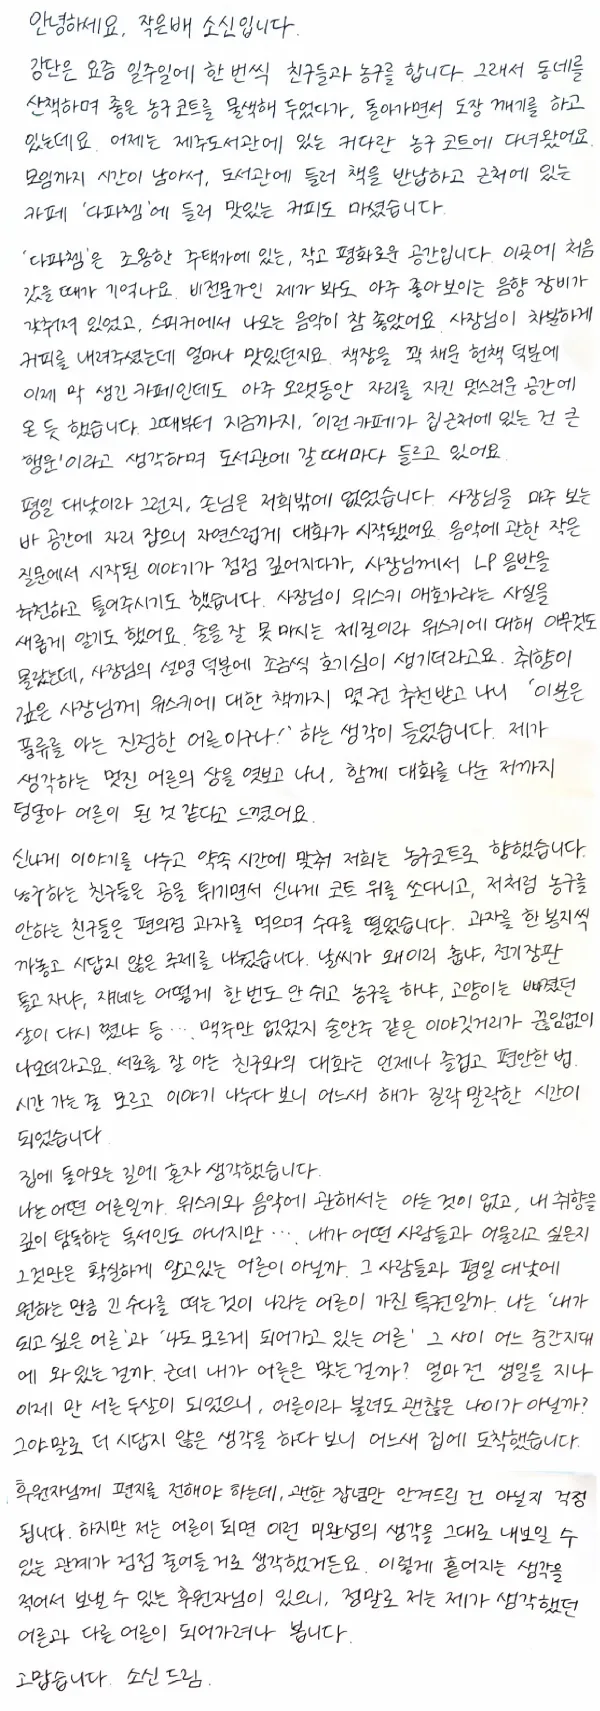 안녕하세요, 작은배 소신입니다.
강단은 요즘 일주일에 한 번씩 친구들과 농구를 합니다. 그래서 동네를
산책하며 좋은 농구코트를 물색해 두었다가, 돌아가면서 도장 깨기를 하고
있는데요. 어제는 제주도서관에 있는 커다란 농구 코트에 다녀왔어요.
모임까지 시간이 남아서, 도서관에 들러 책을 반납하고 근처에 있는
카페 '다파쳄'에 들러 맛있는 커피도 마셨습니다.
'다파쳄'은 조용한 주택가에 있는, 작고 평화로운 공간입니다. 이곳에 처음
갔을 때가 기억나요. 비전문가인 제가 봐도 아주 좋아보이는 음향 장비가
갖춰져 있었고, 스피커에서 나오는 음악이 참 좋았어요. 사장님이 차분하게
커피를 내려주셨는데 얼마나 맛있던지요. 책장을 꽉 채운 헌책 덕분에
이제 막 생긴 카페인데도 아주 오랫동안 자리를 지킨 멋스러운 공간에
온 듯 했습니다. 그때부터 지금까지, '이런 카페가 집근처에 있는 건 큰
행운'이라고 생각하며 도서관에 갈 때마다 들르고 있어요.
평일 대낮이라 그런지, 손님은 저희밖에 없었습니다. 사장님을 마주 보는
바 공간에 자리 잡으니 자연스럽게 대화가 시작됐어요. 음악에 관한 작은
질문에서 시작된 이야기가 점점 깊어지다가, 사장님께서 LP 음반을
추천하고 틀어주시기도 했습니다. 사장님이 위스키 애호가라는 사실을
새롭게 알기도 했어요. 술을 잘 못 마시는 체질이라 위스키에 대해 아무것도
몰랐는데, 사장님의 설명 덕분에 조금씩 호기심이 생기더라고요. 취향이
깊은 사장님께 위스키에 대한 책까지 몇 권 추천받고 나니 '이분은
풍류를 아는 진정한 어른이구나!' 하는 생각이 들었습니다. 제가
생각하는 멋진 어른의 상을 엿보고 나니, 함께 대화를 나눈 저까지
덩달아 어른이 된 것 같다고 느꼈어요.
신나게 이야기를 나누고 약속 시간에 맞춰 저희는 농구코트로 향했습니다.
농구하는 친구들은 공을 튀기면서 신나게 코트 위를 쏘다니고, 저처럼 농구를
안하는 친구들은 편의점 과자를 먹으며 수다를 떨었습니다. 과자를 한 봉지씩
까놓고 시답지 않은 주제를 나눴습니다. 날씨가 왜이리 춥냐, 전기장판
틀고 자냐, 쟤네는 어떻게 한번도 안 쉬고 농구를 하냐, 고양이는 빠졌던
살이 다시 쪘냐 등 …. 맥주만 없었지 술안주 같은 이야깃거리가 끊임없이
나오더라고요. 서로를 잘 아는 친구와의 대화는 언제나 즐겁고 편안한 법.
시간 가는 줄 모르고 이야기 나누다 보니 어느새 해가 질락 말락한 시간이
되었습니다.
집에 돌아오는 길에 혼자 생각했습니다.
나는 어떤 어른일까. 위스키와 음악에 관해서는 아는 것이 없고, 내 취향을
깊이 탐독하는 독서인도 아니지만 …. 내가 어떤 사람들과 어울리고 싶은지
그것만은 확실하게 알고있는 어른이 아닐까. 그 사람들과 평일 대낮에
원하는 만큼 긴 수다를 떠는 것이 나라는 어른이 가진 특권일까. 나는 '내가
되고 싶은 어른'과 '나도 모르게 되어가고 있는 어른' 그 사이 어느 중간지대
에 와 있는 걸까. 근데 내가 어른은 맞는 걸까? 얼마 전 생일을 지나
이제 만 서른 두살이 되었으니, 어른이라 불려도 괜찮은 나이가 아닐까?
그야말로 더 시답지 않은 생각을 하다 보니 어느새 집에 도착했습니다.
후원자님께 편지를 전해야 하는데, 괜한 잡념만 안겨드린 건 아닐지 걱정
됩니다. 하지만 저는 어른이 되면 이런 미완성의 생각을 그대로 내보일 수
있는 관계가 점점 줄어들 거로 생각했거든요. 이렇게 흩어지는 생각을
적어서 보낼 수 있는 후원자님이 있으니, 정말로 저는 제가 생각했던
어른과 다른 어른이 되어가려나 봅니다.
고맙습니다. 소신 드림.